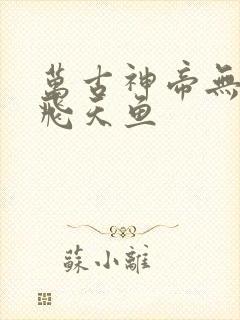 萬古神帝無
飛天鱼
蘇小離